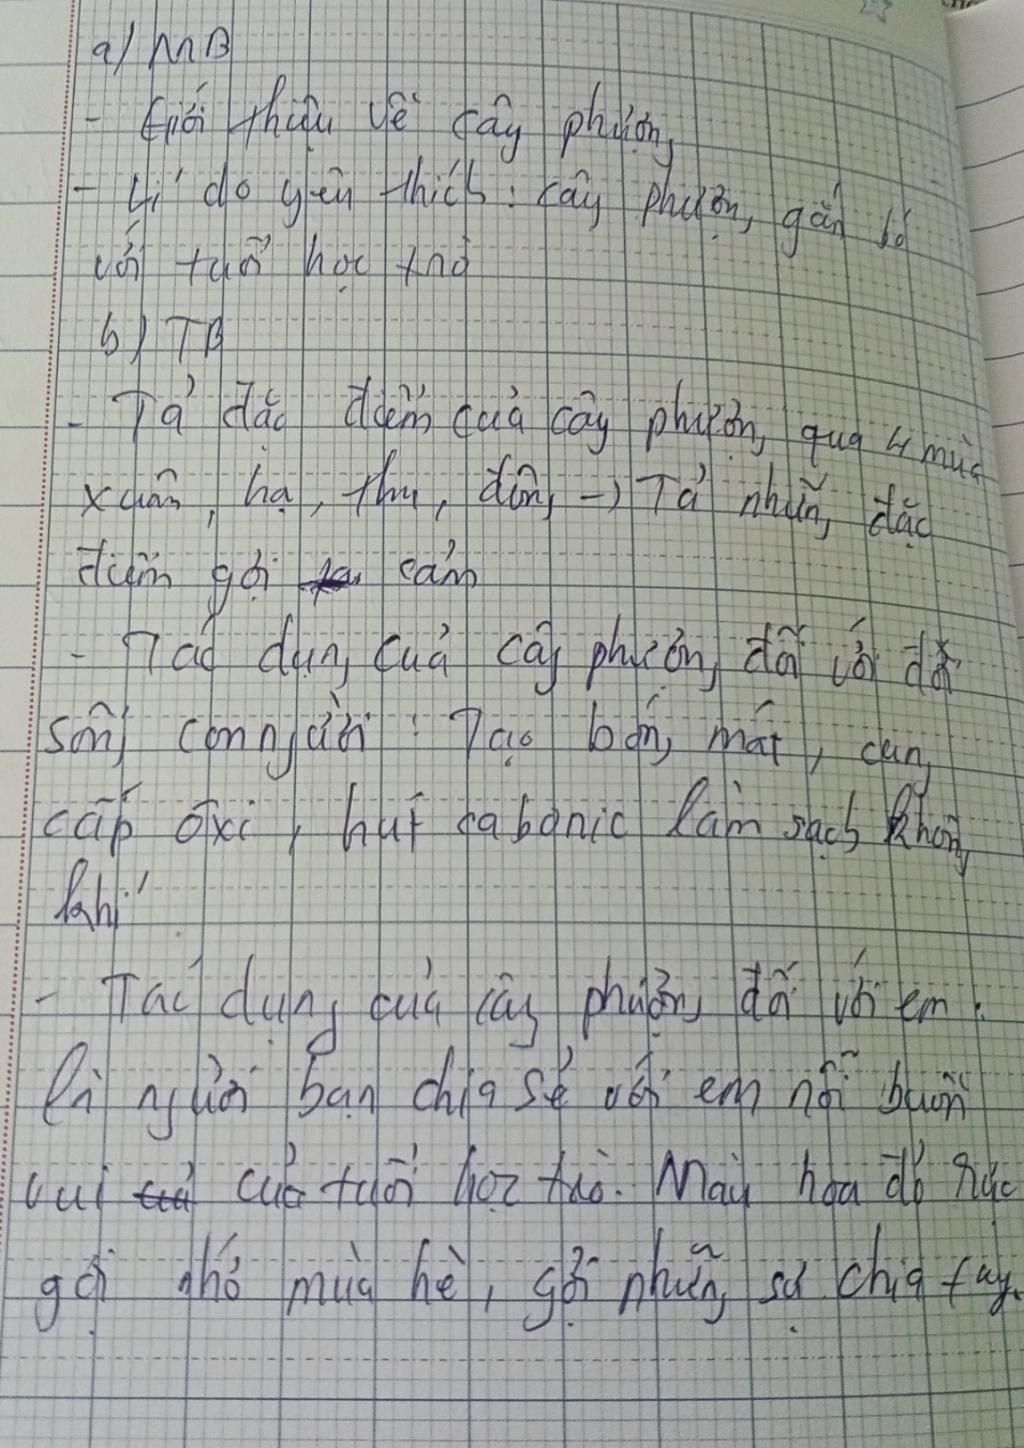 a) MB
- Giới thiệu về cây phượng
- Lí do yêu thích: cây phượng gắn bó
với tuổi học trò
b) TB
- Tả đặc điểm của cây phượng qua 4 mùa
xuân, hạ, thu, đông -> Tả những đặc
điểm gợi cảm
- Tác dụng của cây phượng đối với đời
sống con người: Tạo bóng mát, cung
cấp ôxi, hút cabonic làm sạch không
khí
- Tác dụng của cây phượng đối với em:
là người bạn chia sẻ với em nỗi buồn
vui của tuổi học trò. Màu hoa đỏ rực
gợi nhớ mùa hè, gợi những sự chia tay.